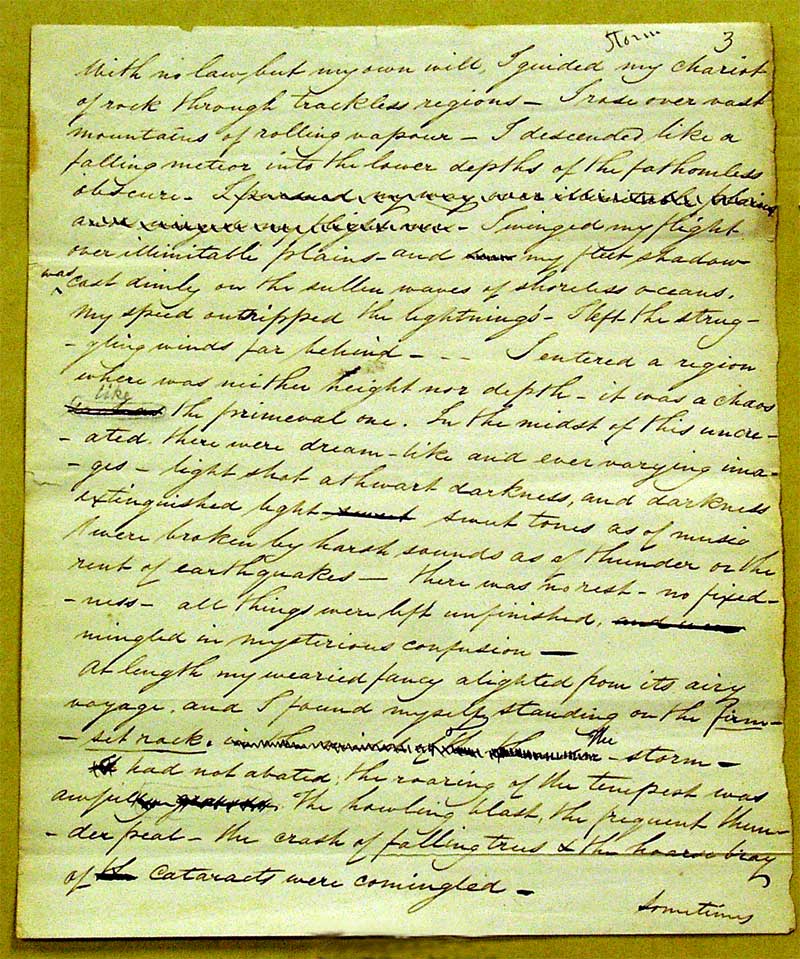 Storm 3
With no law, but my own will, I guided my chariot
of rock through trackless regions – I rose over vast
mountains of rolling vapour – I descended like a
falling meteor into the lower depths of the fathomless
obscure – I pursued my way over illimitable plains
and winged my flight over – I winged my flight
over illimitable plains – and my fleet shadow
was cast dimly on the sullen waves of shoreless oceans.
My speed outstripped the lightning's – I left the strug–
–gling winds far behind – – – I entered a region
where was neither height nor depth – it was a chaos
like the primeval one. In the midst of this uncre–
–ated. there were dream–like and ever varying ima–
–ges – light shot athwart darkness, and darkness
extinguished light – sweet sweet tones as of music
were broken by harsh sounds as of thunder or the
rent of earthquakes – there was no rest – no fixed–
–ness – all things were left unfinished, and were
mingled in mysterious confusion –
At length my wearied fancy alighted from its airy
voyage, and I found myself standing on the firm–
–set rock. the – storm –
had not abated; the roaring of the tempest was
awful. The howling blast, the frequent thun–
–der peal – the crash of falling trees & the hoarse bray
of cataracts were comingled –
sometimes